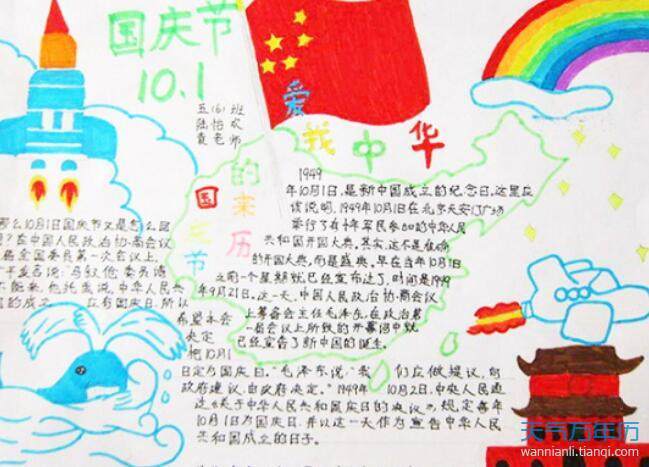 国庆节
10.1
五(6)班
陆怡欢
袁老师
爱我中华
国庆节的来历
1949
年10月1日,是新中国成立的纪念日。这里应
该说明,1949年10月1日在北京天安门广场
举行了有十年军民参加的中华人民
共和国开国大典。其实,这不是准确
的开国大典,而是盛典。早在当年10月1日
之前一个星期就已经宣布过了,时间是1949
年9月21日。这一天,中国人民政治协商会议
上筹备会主任毛泽东,在政治第
一届会议上所致的开幕词中就
已经宣告了新中国的诞生。
么10月1日国庆节又是怎么回
?在中国人民政治协商会议
届全国委员第一次会议上,
不能来,他托我说,中华人民共
的成立 应有国庆日,所以
希望本会
决定
把10月1
日定为国庆日。"毛泽东说"我们应做提议,向
政府建议,由政府决定。"1949年10月2日,中央人民通
过《关于中华人民共和国国庆日的决议》规定每年
10月1日为国庆日,并以这一天作为宣告中华人民
共和国成立的日子。
天气万年历
wannianli.tianqi.com